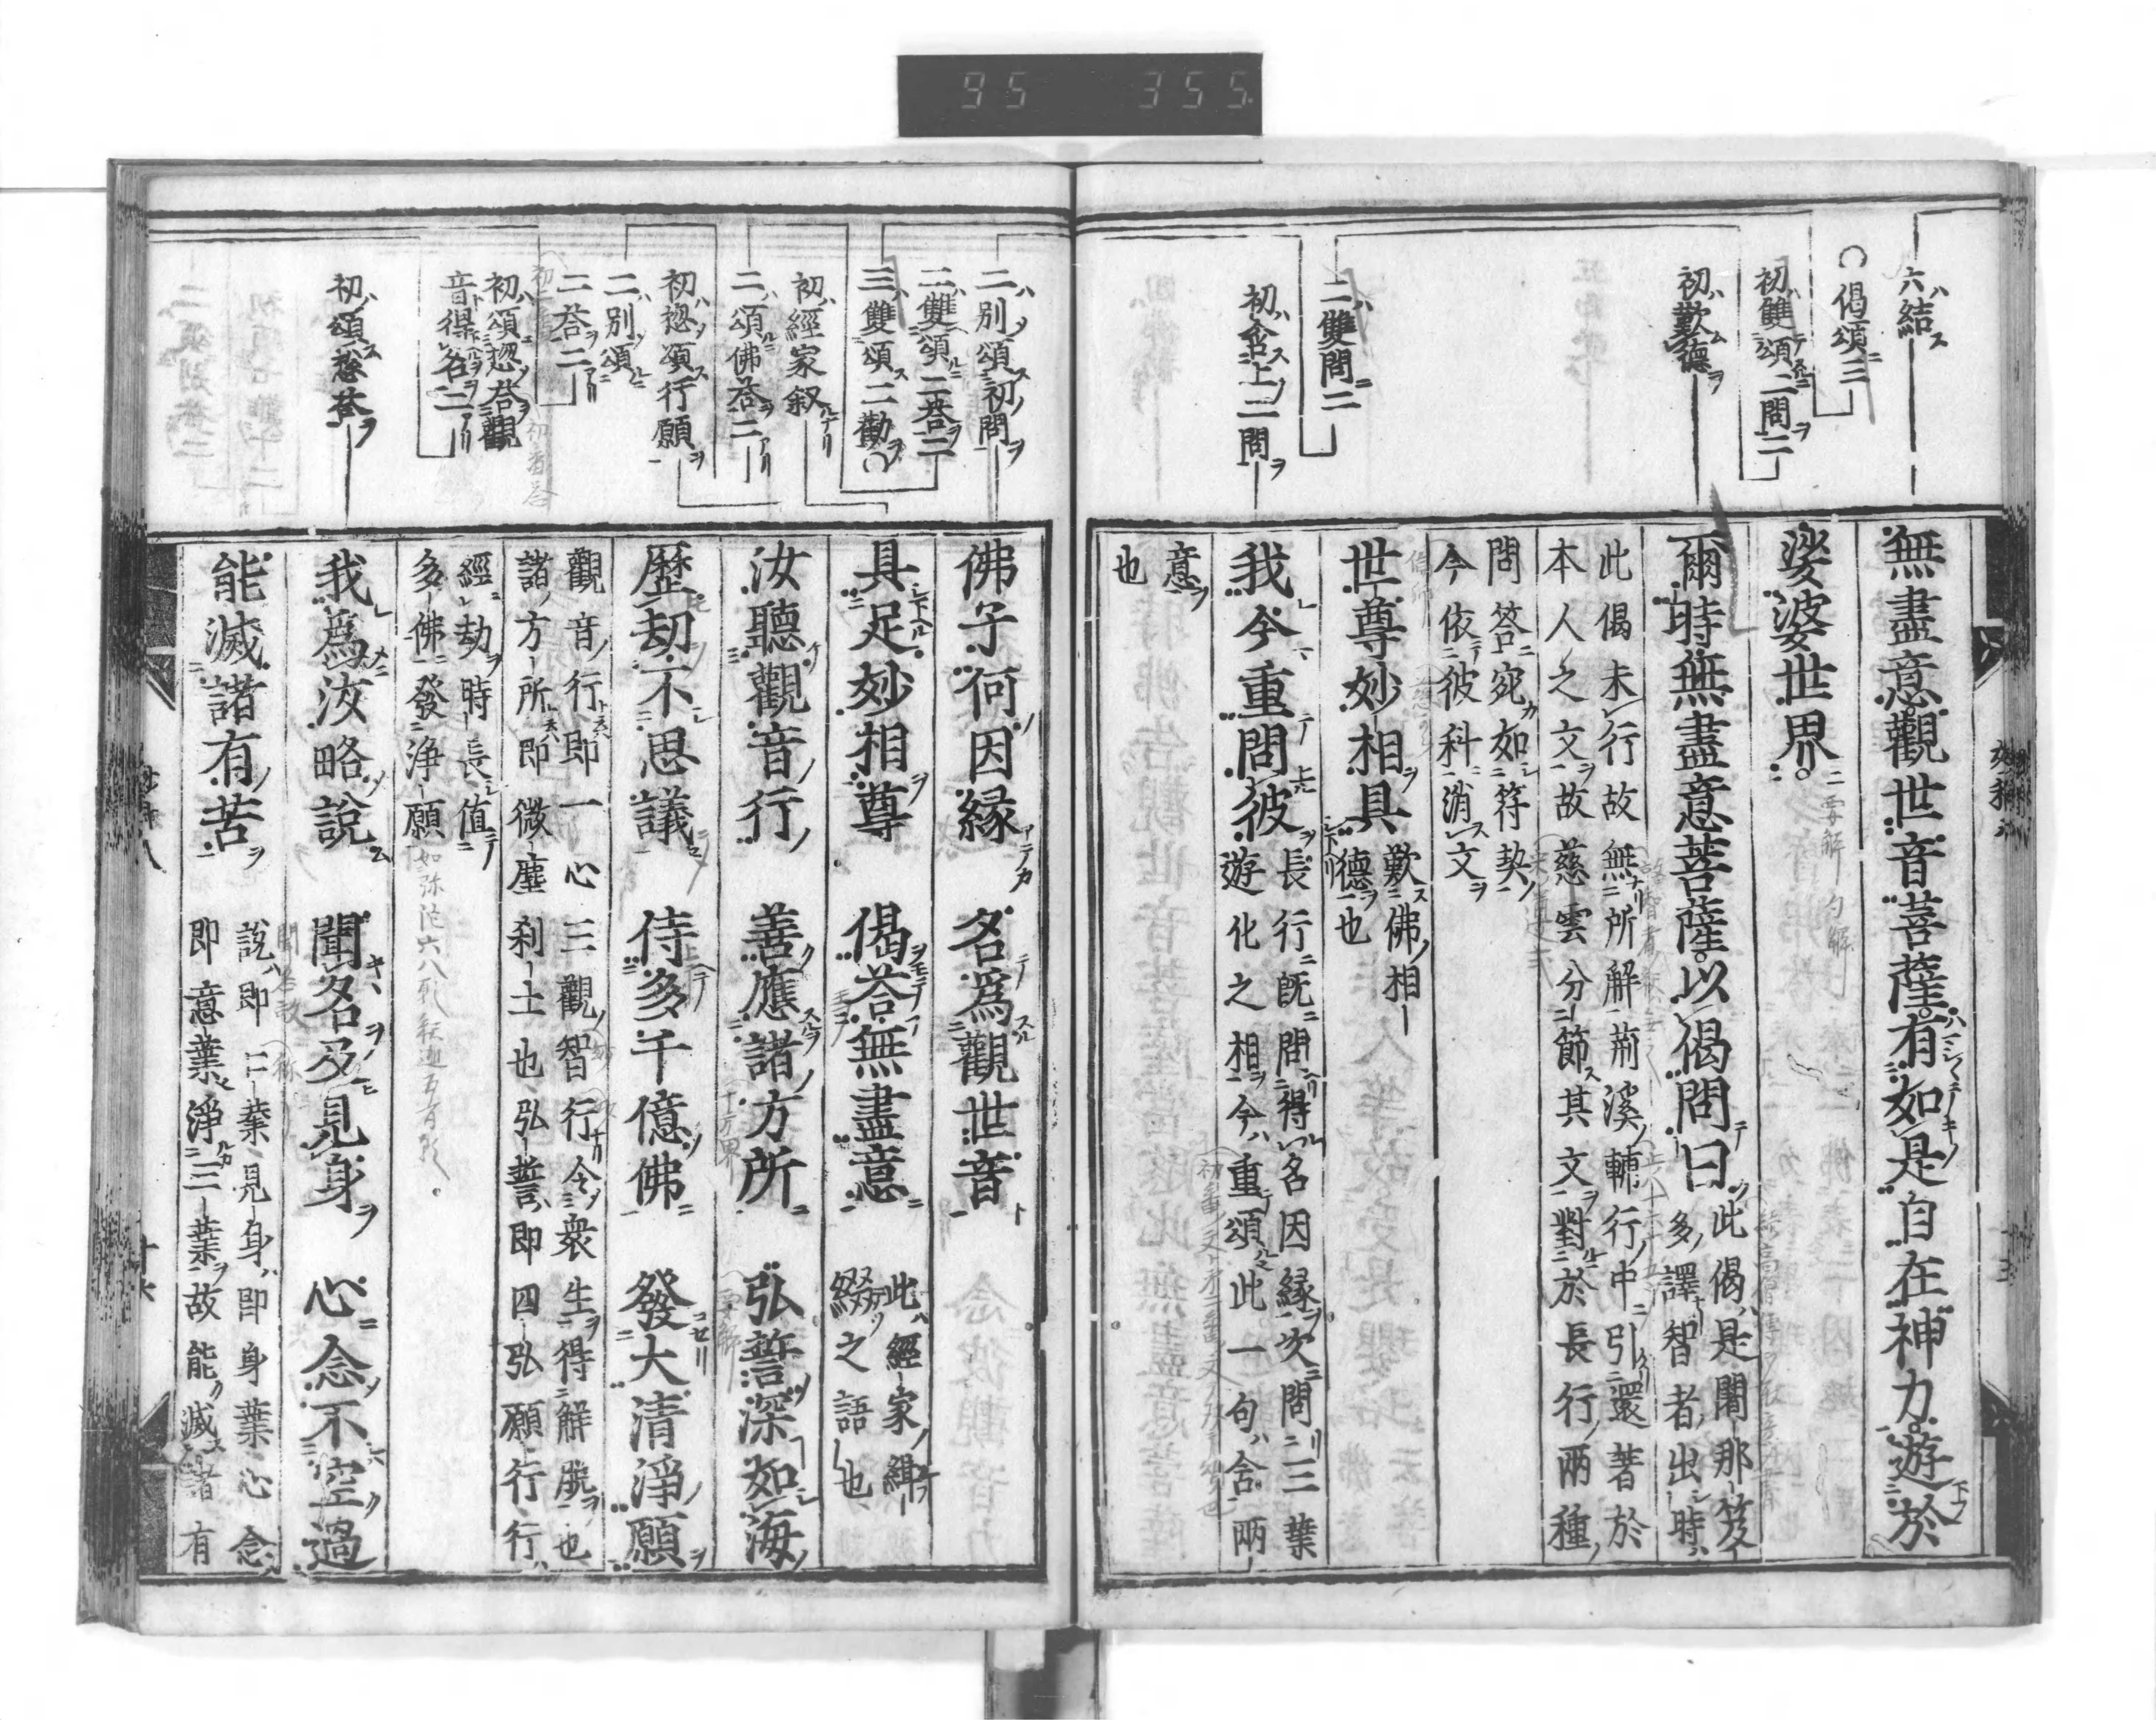 95 355
六結
○偈頌三
初雙頌二問二
初歎德
二雙問二
初舍上二問
無盡意觀世音菩薩有如是自在神力遊於
娑婆世界
爾時無盡意菩薩以偈問曰
此偈是闍那笈
多譯智者出時
此偈未行故無所解荊溪輔行中引還著於
本人之文故慈雲分節其文對於長行兩種
問答宛如符契
今依彼科消文
世尊妙相具
歎佛相
德也
我今重問彼
長行既問得名因緣次問三業
遊化之相今重頌此一句含兩
意
也
二別頌初問
二雙頌二荅二
三雙頌二勸○
初經家叙
二頌佛荅二
初揔頌行願
二別頌
二荅二
初頌揔荅觀
音得名二
初頌揔荅
佛子何因縁 名為觀世音
具足妙相尊 偈荅無盡意
此經家緝
綴之語也
汝聽觀音行 善應諸方所 弘誓深如海
歷劫不思議 侍多千億佛 發大清淨願
觀音行即一心三觀智行令衆生得解脫也
諸方所即微塵刹土也弘誓即四弘願行行
經劫時長值
多佛發淨願
我為汝略說 聞名及見身 心念不空過
能滅諸有苦
說即口業見身即身業心念
即意業淨三業故能滅諸有